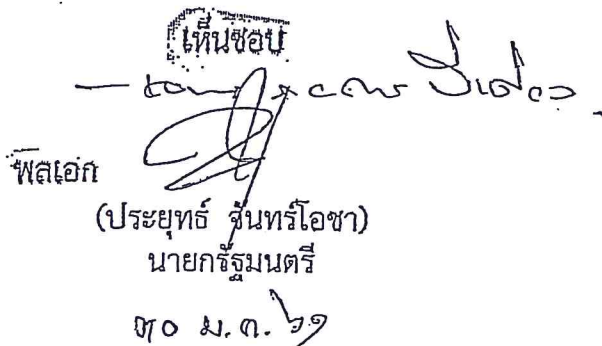 เห็นชอบ
พลเอก
(ประยุทธ์ จันทร์โอชา)
นายกรัฐมนตรี
๓๐ ม.ค. ๖๑